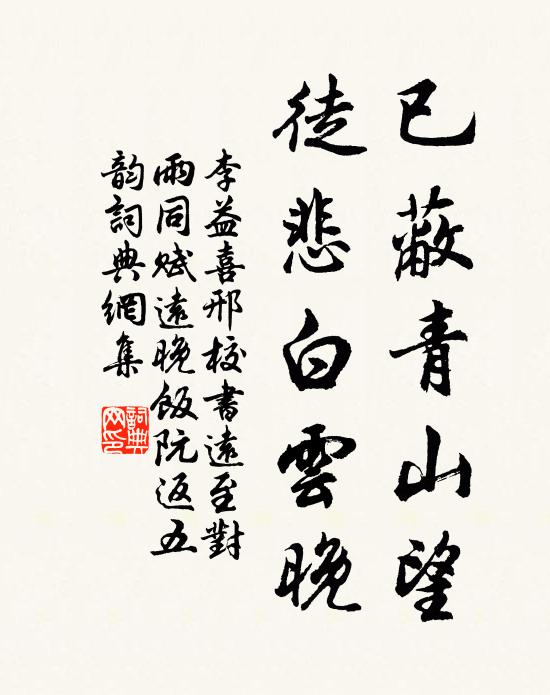 已蔽青山望
徒悲白雲晚
李益喜邢校書遠至對
雨同賦遠晚飯阮返五
韵詞典網集
詞典
网印